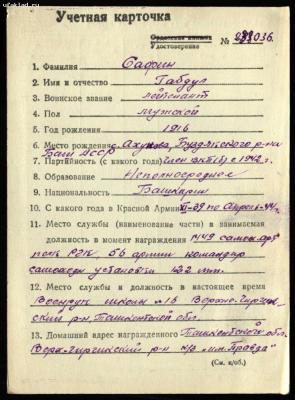 www.ufaklad.ru
Учетная карточка
Орденская книжка
Удостоверение № 036
1. Фамилия Сафин
2. Имя и отчество Габдул
3. Воинское звание лейтенант
4. Пол мужской
5. Год рождения 1916
6. Место рождения с. Ахуново, Буздякского р-на
Баш АССР
7. Партийность (с какого года) член ВКП(б) с 1942 г.
8. Образование Неполносреднее
9. Национальность Башкирин
10. С какого года в Красной Армии XI-39 по
11. Место службы (наименование части) и занимаемая
должность в момент награждения 1449 самох. арт
полк РГК 56 армии командир
самоход установки мм.
12. Место службы и должность в настоящее время
Военрук школы № 16 Верхне-Чирчик-
ский р-н, Ташкентской обл.
13. Домашний адрес награжденного Ташкентской обл.
Верх-Чирчикский р-н "Правда"
(См. н/об.)